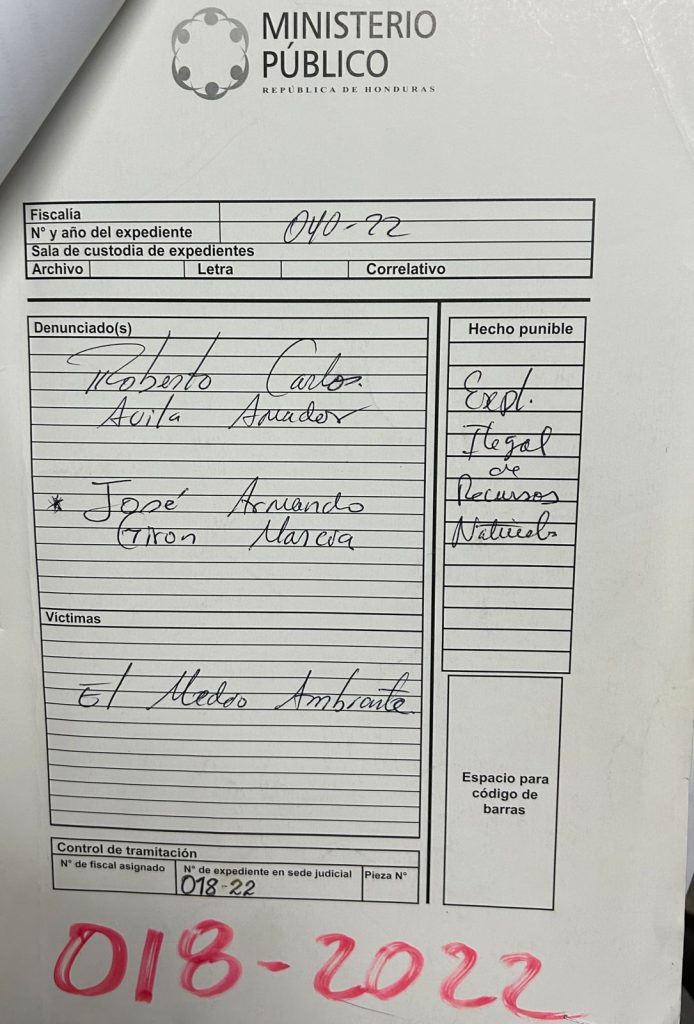 MINISTERIO
PÚBLICO
REPÚBLICA DE HONDURAS
Fiscalía
N° y año del expediente 040-22
Sala de custodia de expedientes
Archivo Letra Correlativo
Denunciado(s)
Roberto Carlos
Avila Amador
* José Armando
Giron Marcia
Hecho punible
Expl.
Ilegal
de
Recursos
Naturales
Víctimas
El Medio Ambiente
Espacio para
código de
barras
Control de tramitación
N° de fiscal asignado N° de expediente en sede judicial Pieza N°
018-22
018-2022